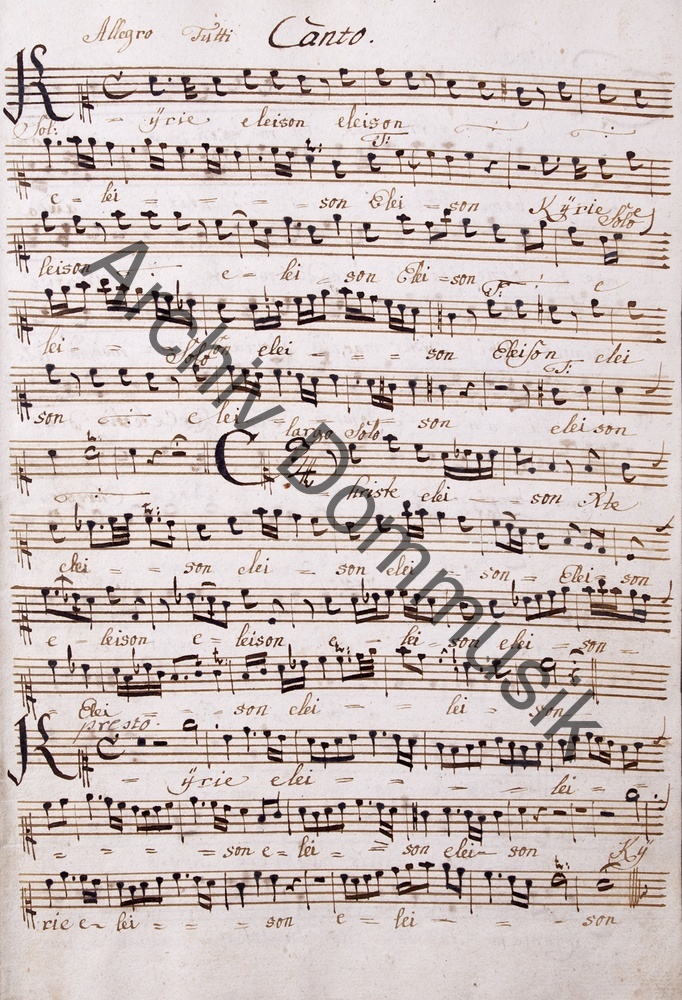 Allegro Tutti Canto.
Kÿrie eleison eleison
Sol: T:
e - lei - - - - son Elei - son Kÿrie e
Solo
leison e - lei - son Elei - son e
T:
lei - - - elei - - - son Eleison elei
Solo T:
son e lei - - son elei son
largo Solo
Christe elei - - son Xte
elei - - son elei - - son elei - - son - Elei - son
e - leison e - leison e - lei - son elei - son -
- Elei - - son elei - - lei - son
presto.
Kÿrie elei - - - - - lei -
- - - - - son e - lei - - son elei - son Kÿ
rie e - lei - - - son e - lei - - - son
Archiv Dommusik